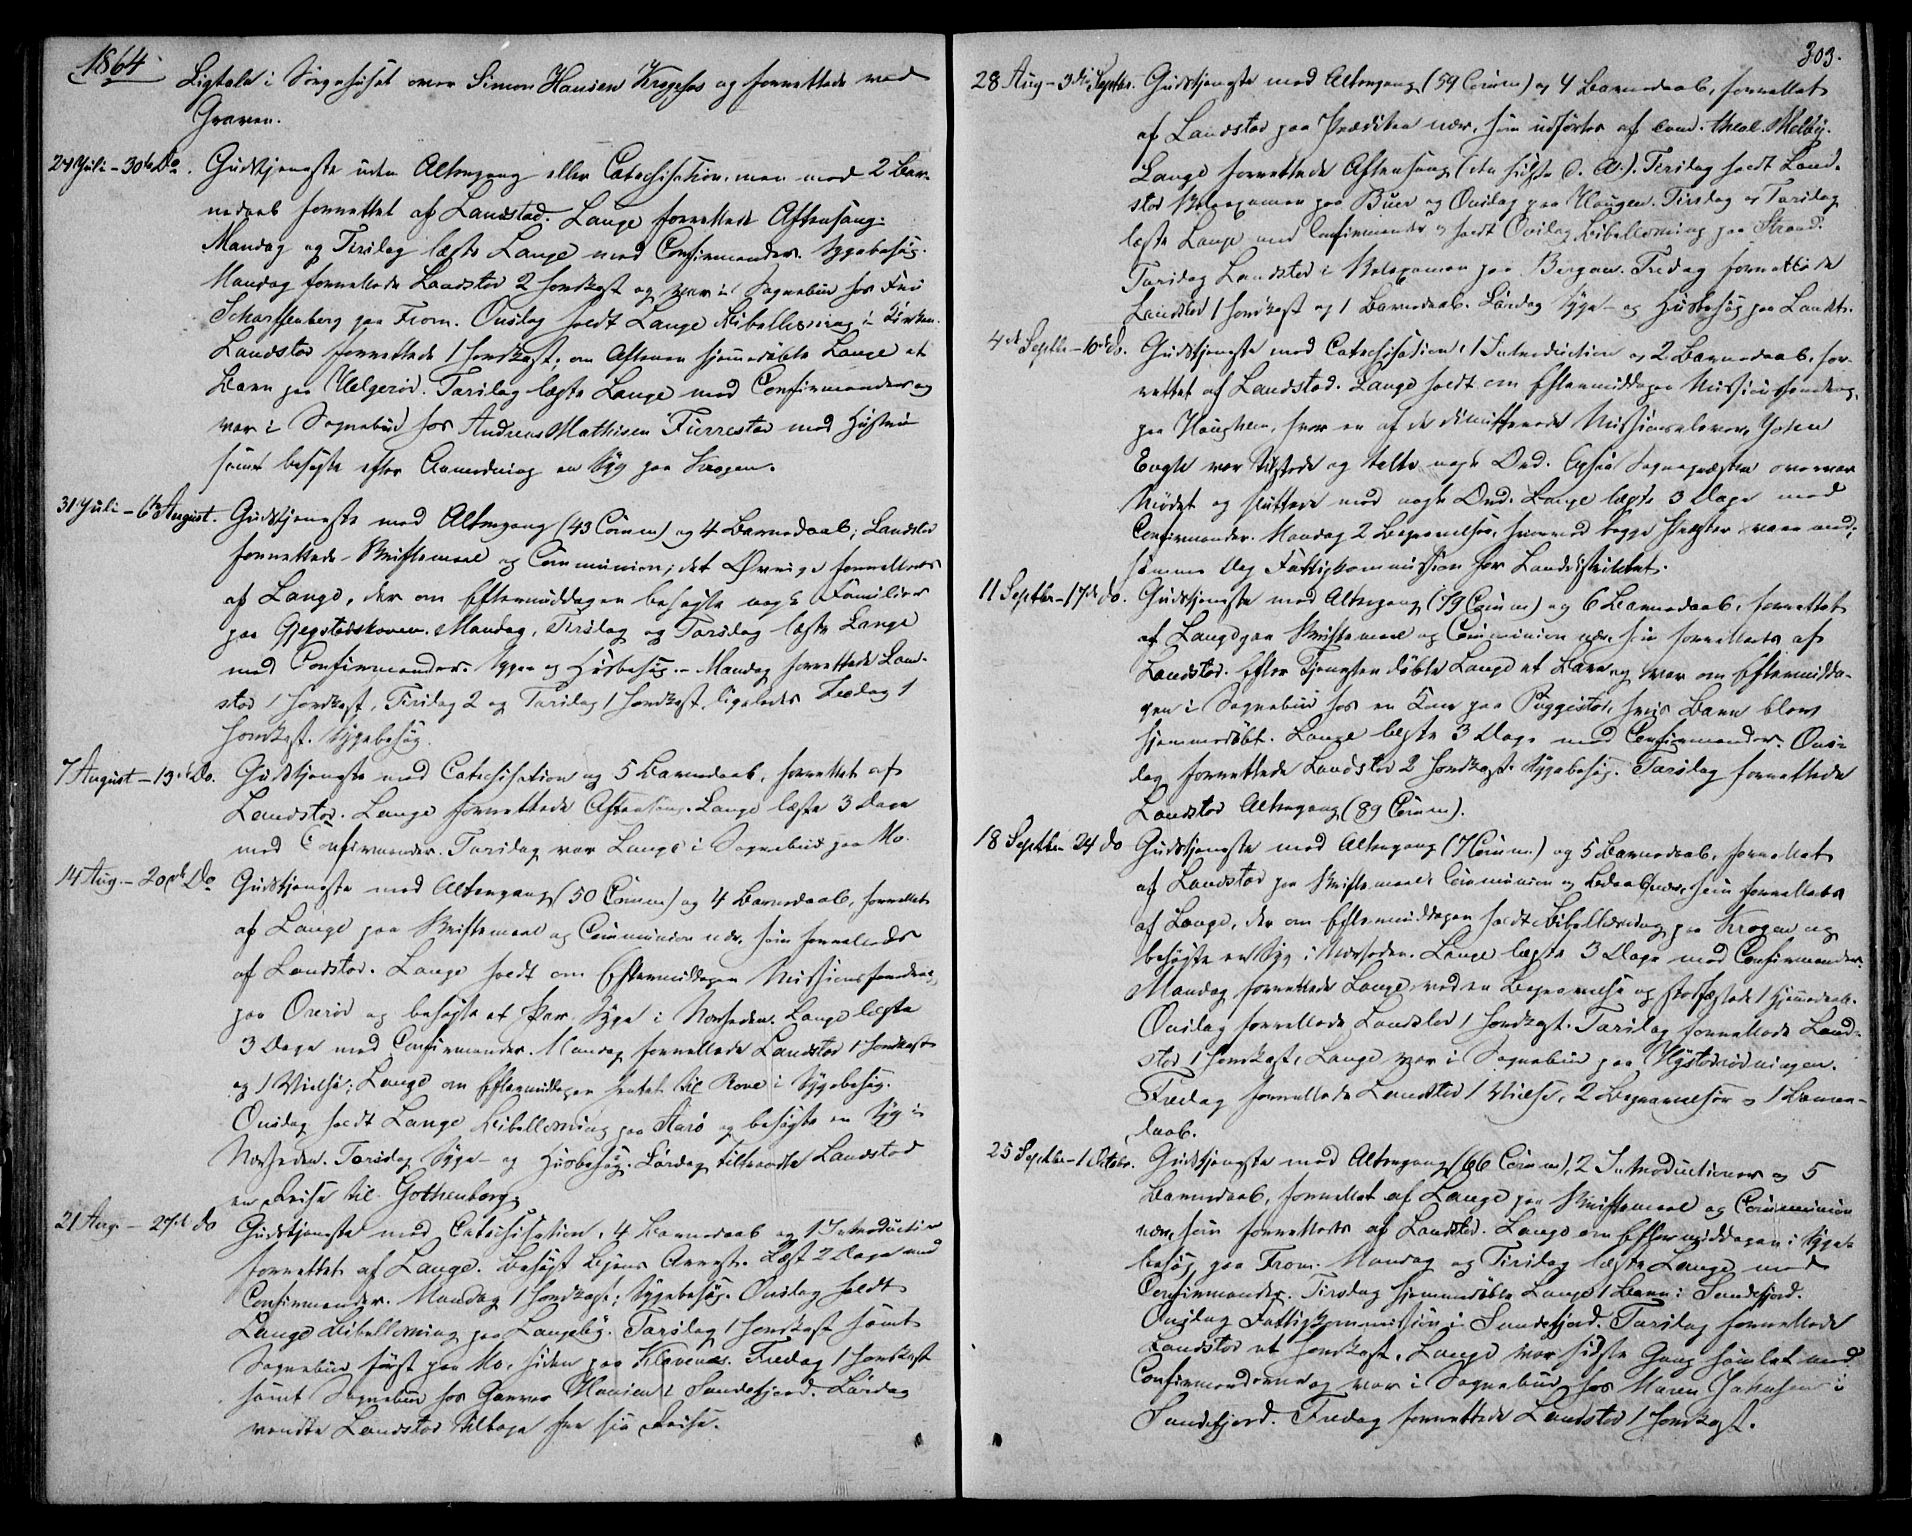 1864
Ligtale i Sørgehuset over Simon Hansen Krogshos og forrettede ved
Graven.
24 Juli – 30te Do. Gudstjeneste uden Altergang eller Catechisation, men med 2 Bar-
nedaab forrettet af Landstad. Lange forrettede Aftensang.
Mandag og Tirsdag læste Lange med Confirmander. Sygebesøg.
Mandag forrettede Landstad 2 Jordkast og var i Sognebud hos Fru
Scharffenberg paa From. Onsdag holdt Lange Bibellæsning i Kirken.
Landstad forrettede 1 Jordkast; om Aftenen hjemmedøbte Lange et
Barn paa Helgerød. Torsdag læste Lange med Confirmander og
var i Sognebud hos Andreas Mathisen Furrestad med Hustru
samt besøgte efter Anmodning en Syg paa Krogen.
31 Juli – 6te August. Gudstjeneste med Altergang (43 Comm) og 4 Barnedaab; Landstad
forrettede Skriftemaal og Communion; det Øvrige forrettedes
af Lange, der om Eftermiddagen besøgte nogle Familier
paa Gjegstadskoven. Mandag, Tirsdag og Torsdag læste Lange
med Confirmander. Syge og Husbesøg. Mandag forrettede Land-
stad 1 Jordkast, Tirsdag 2 og Torsdag 1 Jordkast, ligeledes Fredag 1
Jordkast. Sygebesøg.
7 August – 13de Do. Gudstjeneste med Catechisation og 5 Barnedaab, forrettet af
Landstad. Lange forrettede Aftensang. Lange læste 3 Dage
med Confirmander. Torsdag var Lange i Sognebud paa Mo.
14 Aug. – 20de Do Gudstjeneste med Altergang (50 Comm) og 4 Barnedaab, forrettet
af Lange paa Skriftemaal og Communion nær, som forrettedes
af Landstad. Lange holdt om Eftermiddagen Missionsforedrag
paa Orerød og besøgte et Par Syge i Nærheden. Lange læste
3 Dage med Confirmander. Mandag forrettede Landstad 1 Jordkast
og 1 Vielse; Lange om Eftermiddagen hentet til Rove i Sygebesøg.
Onsdag holdt Lange Bibellæsning paa Aarø og besøgte en Syg i
Nærheden. Torsdag Syge- og Husbesøg. Lørdag tiltraadte Landstad
en Reise til Gothenborg.
21 Aug. – 27de do Gudstjeneste med Catechisation, 4 Barnedaab og 1 Introduction
forrettet af Lange. Besøgt Byens Arrest. Læst 2 Dage med
Confirmander. Mandag 1 Jordkast; Sygebesøg. Onsdag holdt
Lange Bibellæsning paa Langeby. Torsdag 1 Jordkast samt
Sognebud først paa Mo, siden paa Klavenæs. Fredag 1 Jordkast
samt Sognebud hos Garver Hansen i Sandefjord. Lørdag
vendte Landstad tilbage fra sin Reise.
303.
28 Aug – 3die Septbr. Gudstjeneste med Altergang (59 Comm) og 4 Barnedaab, forrettet
af Landstad paa Prædiken nær, som udførtes af Cand. theol. Melby.
Lange forrettede Aftensang (den sidste d. A.). Tirsdag holdt Land-
stad Skoleexamen paa Buer og Onsdag paa Haugen. Tirsdag og Torsdag
læste Lange med Confirmander og holdt Onsdag Bibellæsning paa Strand.
Torsdag Landstad i Skoleexamen paa Bergan. Fredag forrettede
Landstad 1 Jordkast og 1 Barnedaab. Lørdag Syge- og Husbesøg paa Landet.
4de Septbr – 10de Do. Gudstjeneste med Catechisation, 1 Introduction og 2 Barnedaab, for-
rettet af Landstad. Lange holdt om Eftermiddagen Missionsforedrag
paa Haughem, hvor en af de dimitterede Missionselever, John
Engh var tilstede og talte nogle Ord. Ogsaa Sognepræsten overvar
Mødet og sluttede med nogle Ord. Lange læste 3 Dage med
Confirmander. Mandag 2 Begravelser, hvorved begge Præster vare med;
samme Dag Fattigkommission for Landdistriktet.
11 Septbr – 17de do. Gudstjeneste med Altergang (79 Comm) og 6 Barnedaab, forrettet
af Lange paa Skriftemaal og Communion nær, som forrettedes af
Landstad. Efter Tjenesten døbte Lange et Barn og var om Eftermidda-
gen i Sognebud hos en Kone paa Puggestad, hvis Barn blev
hjemmedøbt. Lange læste 3 Dage med Confirmander. Ons-
dag forrettede Landstad 2 Jordkast. Sygebesøg. Torsdag forrettede
Landstad Altergang (89 Comm).
18 Septbr – 24 do Gudstjeneste med Altergang (7 Comm) og 5 Barnedaab, forrettet
af Landstad paa Skriftemaal, Communion og Bedaab nær, som forrettedes
af Lange, der om Eftermiddagen holdt Bibellæsning paa Krogen og
besøgte en Syg i Nærheden. Lange læste 3 Dage med Confirmander.
Mandag forrettede Lange ved en Begravelse og stadfæstede 1 Hjemmedaab.
Onsdag forrettede Landstad 1 Jordkast. Torsdag forrettede Land-
stad 1 Jordkast, Lange var i Sognebud paa Hystadrødningen.
Fredag forrettede Landstad 1 Vielse, 2 Begravelser og 1 Barne-
daab.
25 Septbr – 1 Octobr. Gudstjeneste med Altergang (66 Comm), 2 Introductioner og 5
Barnedaab, forrettet af Lange paa Skriftemaal og Communion
nær, som forrettedes af Landstad. Lange om Eftermiddagen i Syge-
besøg paa From. Mandag og Tirsdag læste Lange med
Confirmander. Tirsdag hjemmedøbte Lange 1 Barn i Sandefjord.
Onsdag Fattigkommission i Sandefjord. Torsdag forrettede
Landstad et Jordkast, Lange var sidste Gang samlet med
Confirmanderne og var i Sognebud hos Maren Jakobsen i
Sandefjord. Fredag forrettede Landstad 1 Jordkast.